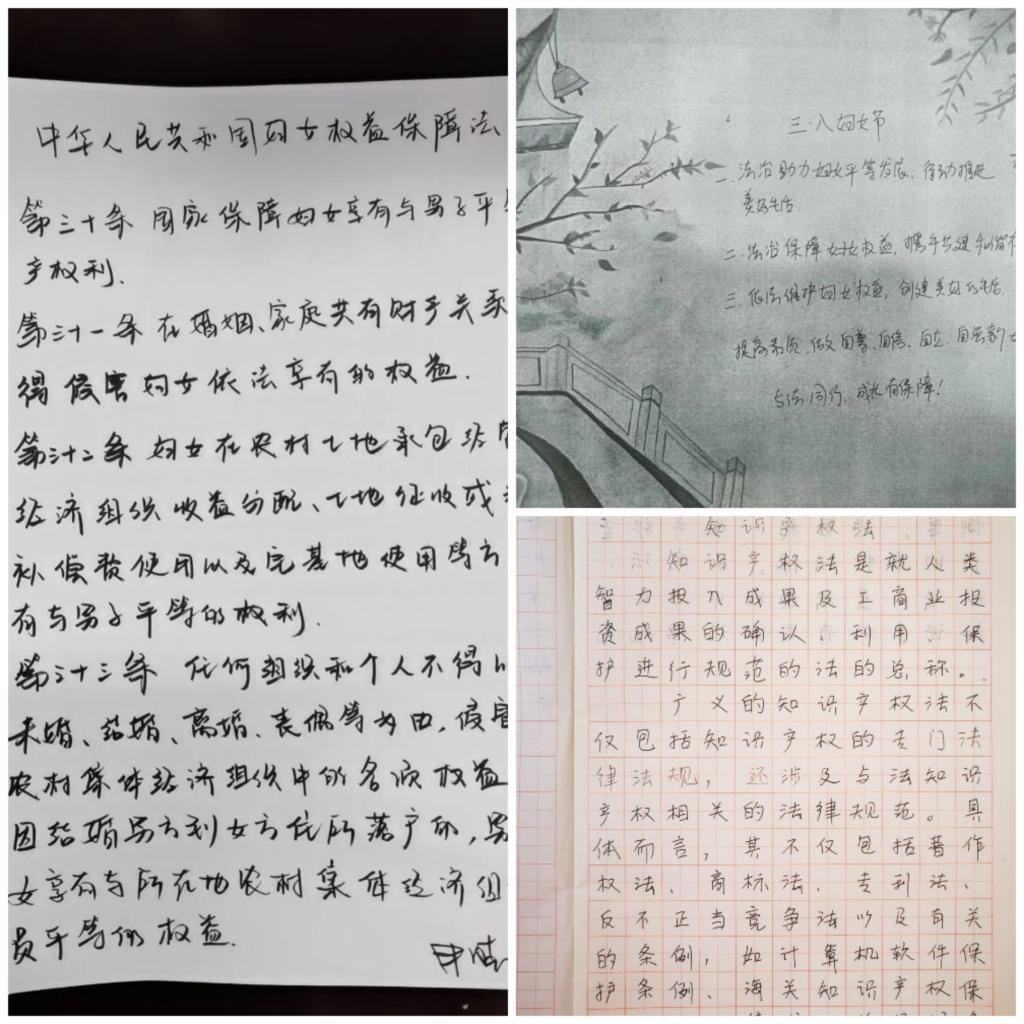 中华人民共和国妇女权益保障法
第三十条 国家保障妇女享有与男子平
产权利.
第三十一条 在婚姻、家庭共有财产关系
得侵害妇女依法享有的权益.
第三十二条 妇女在农村土地承包经营
经济组织收益分配、土地征收或
补偿费使用以及宅基地使用等方
有与男子平等的权利.
第三十三条 任何组织和个人不得以
未婚、结婚、离婚、丧偶等为由,侵害
农村集体经济组织中的各项权益
因结婚男方到女方住所落户的,男
女享有与所在地农村集体经济组
员平等的权益.
三·八妇女节
一.法治助力妇女平等发展,行动推进
美好生活.
二.法治保障妇女权益,携手共建和谐
三.依法维护妇女权益,创建美好的生活.
提高素质,做自尊、自信、自立、自强新
与法同行,成长有保障!
知识产权法
知识产权法是就人类
智力投入成果及工商业投
资成果的确认、利用、保
护进行规范的法的总称。
广义的知识产权法不
仅包括知识产权的专门法
律法规,还涉及与法知识
产权相关的法律规范。具
体而言,其不仅包括著作
权法、商标法、专利法、
反不正当竞争法以及有关
的条例,如计算机软件保
护条例、海关知识产权保